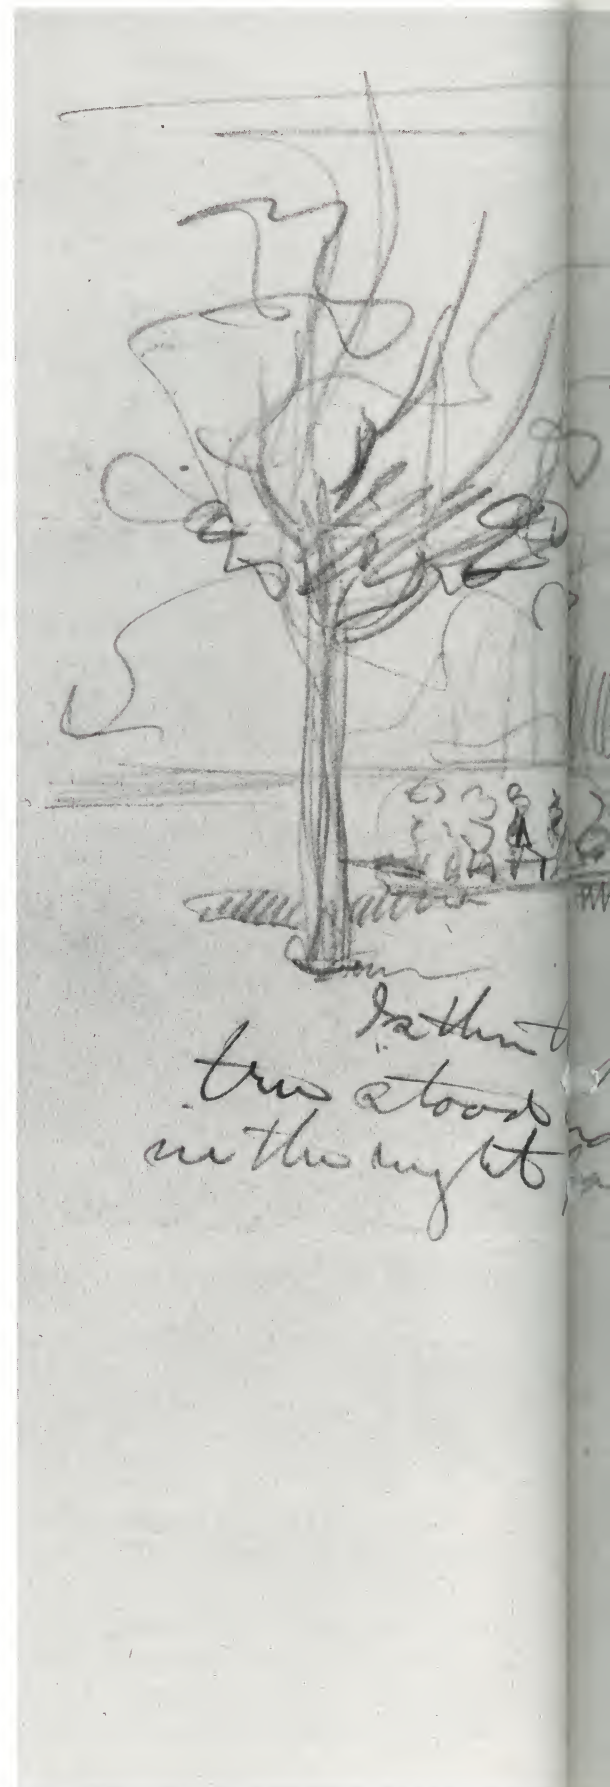 Is this
tree stood
in the night